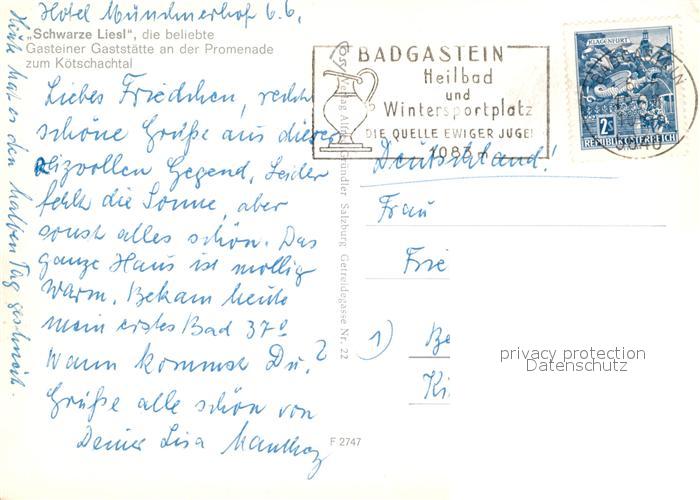 Hotel Mündnerhof 6.6.
„Schwarze Liesl“, die beliebte
Gasteiner Gaststätte an der Promenade
zum Kötschachtal
Liebes Friedchen, recht
schöne Grüße aus dieser
reizvollen Gegend, Leider
fehlt die Sonne, aber
sonst alles schön. Das
ganze Haus ist mollig
warm. Bekam heute
mein erstes Bad 37°
Wann kommst Du?
Grüße alle schön von
Deiner Lisa
Heute hat es den halben Tag geschneit.
F 2747
Verlag Gründler Salzburg Getreidegasse Nr. 22
BADGASTEIN
Heilbad
und
Wintersportplatz
DIE QUELLE EWIGER JUGE
KLAGENFURT
2S
REPUBLIK ÖSTERREICH
Deutschland!
Frau
Frie
1) Be
Ki
privacy protection
Datenschutz